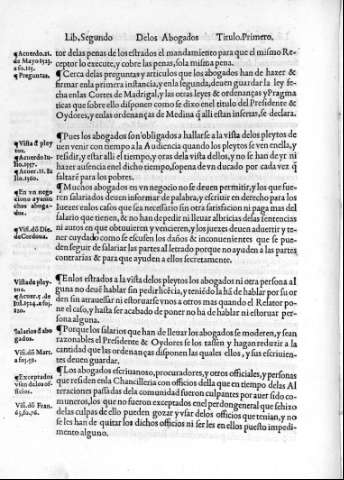 Lib, Segundo Delos Abogados Titulo. Primero.
¶Acuerdo.21.
de Mayo
a fo.125.
¶Preguntas.
tor delas penas de los estrados el mandamiento para que el mismo Re
ceptor lo execute, y cobre las penas, so la misma pena.
¶Cerca delas preguntas y articulos que los abogados han de hazer &
firmar enla primera instancia, y enla segunda, deuen guardar la ley fe-
cha enlas Cortes de Madrigal, y las otras leyes & ordenanças y Pragma
ticas que sobre ello disponen como se dixo enel titulo del Presidente &
Oydores, y enlas ordenanças de Medina q̃ alli estan insertas, se declara.
¶Vista d̃ pley
tos.
¶Acuerdo
¶Acuer.
¶Pues los abogados son obligados a hallarse a la vista delos pleytos de
uen venir con tiempo a la Audiencia quando los pleytos se veen enella, y
residir, y estar alli el tiempo, y oras dela vista dellos, y no se han de yr ni
hazer ausencia enel dicho tiempo, so pena de vn ducado por cada vez q̃
faltarẽ para los pobres.
¶En vn nego
cio no ayan mu
chos aboga-
dos.
¶Visi. dõ Die.
de Cordoua.
¶Muchos abogados en vn negocio no se deuen permitir, y los que fue-
ren salariados deuen informar de palabra, y escriuir en derecho para los
Iuezes enlos casos que sea necessario sin otra satisfacion ni paga mas del
salario que tienen, & no han depedir ni lleuar albricias delas sentencias
ni autos en que obtuuieren y vencieren, y los juezes deuen aduertir y te-
ner cuydado como se escusen los daños & inconuenientes que se pue-
den seguir de salariar las partes al letrado porque no ayuden a las partes
contrarias & para que ayuden a ellos secretamente.
Vista de pley-
tos.
¶Acuer.
¶Enlos estrados a la vista delos pleytos los abogados ni otra persona al
guna no deuẽ hablar sin pedir licẽcia, y teniẽdola hã de hablar por su or
den sin atrauessar ni estoruarse vnos a otros mas quando el Relator po-
ne el caso, y hasta ser acabado de poner no ha de hablar ni estoruar per-
sona alguna.
Salarios d̃ abo
gados.
Visi. dõ Mart.
¶Porque los salarios que han de lleuar los abogados se moderen, y sean
razonables el Presidente & Oydores se los tassen y hagan reduzir a la
cantidad que las ordenanças disponen las quales ellos, y sus escriuien-
tes deuen guardar.
¶Exceptados
visi dõ Fran.
¶Los abogados escriuanos, procuradores, y otros officiales, y personas
que residen enla Chancilleria con officios della que en tiempo delas Al
teraciones passadas dela comunidad fueron culpantes por auer sido co-
muneros, los que no fueron exceptados enel perdon general que se hizo
delas culpas de ello pueden gozar y vsar delos officios que tenian, y no
se les han de quitar los dichos officios ni ser les en ellos puesto impedi-
mento alguno.